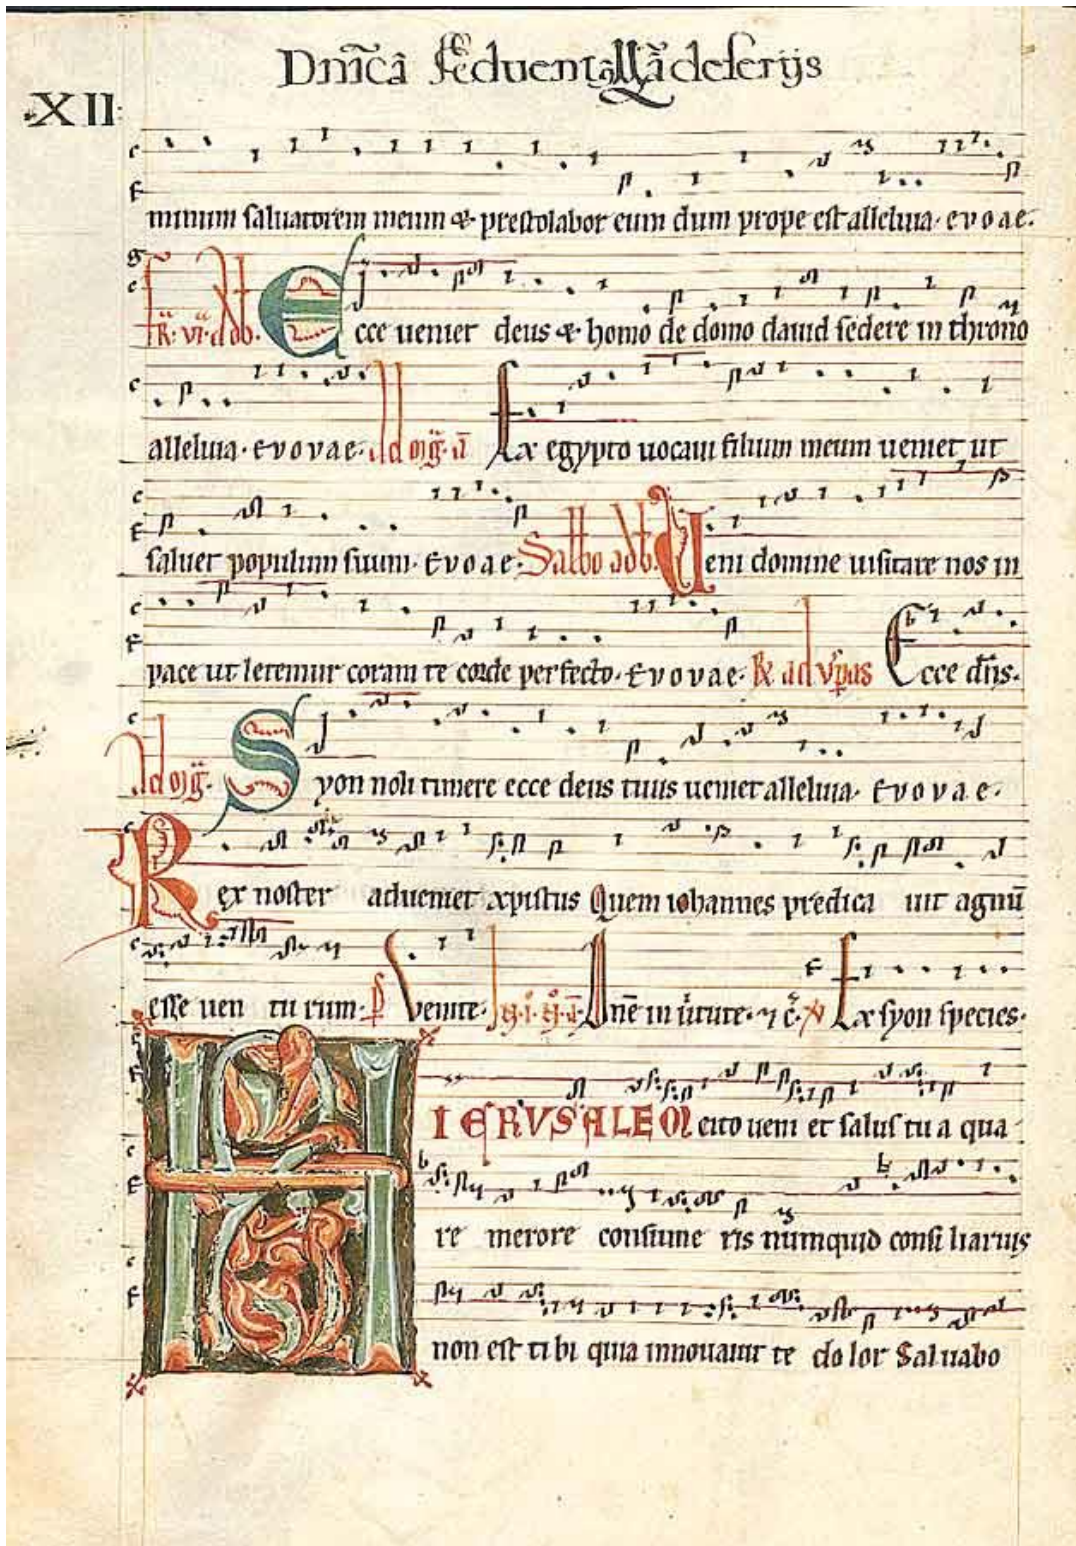 XII
minum saluatorem meum & prestolabor eum dum prope est alleluia. e v o a e.
Ecce veniet deus & homo de domo dauid sedere in throno
alleluia. e v o v a e. Ex egypto uocaui filium meum ueniet ut
saluet populum suum. E v o a e. Sabbo Ueni domine uisitare nos in
pace ut letemur coram te corde perfecto. E v o v a e. Ecce dñs.
Syon noli timere ecce deus tuus ueniet alleluia. E v o v a e.
Rex noster adueniet xpistus Quem iohannes predica uit agnũ
esse ven tu rum. Venite. Ex syon species.
HIERUSALEM cito veni et salus tu a qua
re merore consume ris numquid consi liarius
non est ti bi quia innouauit te do lor Saluabo